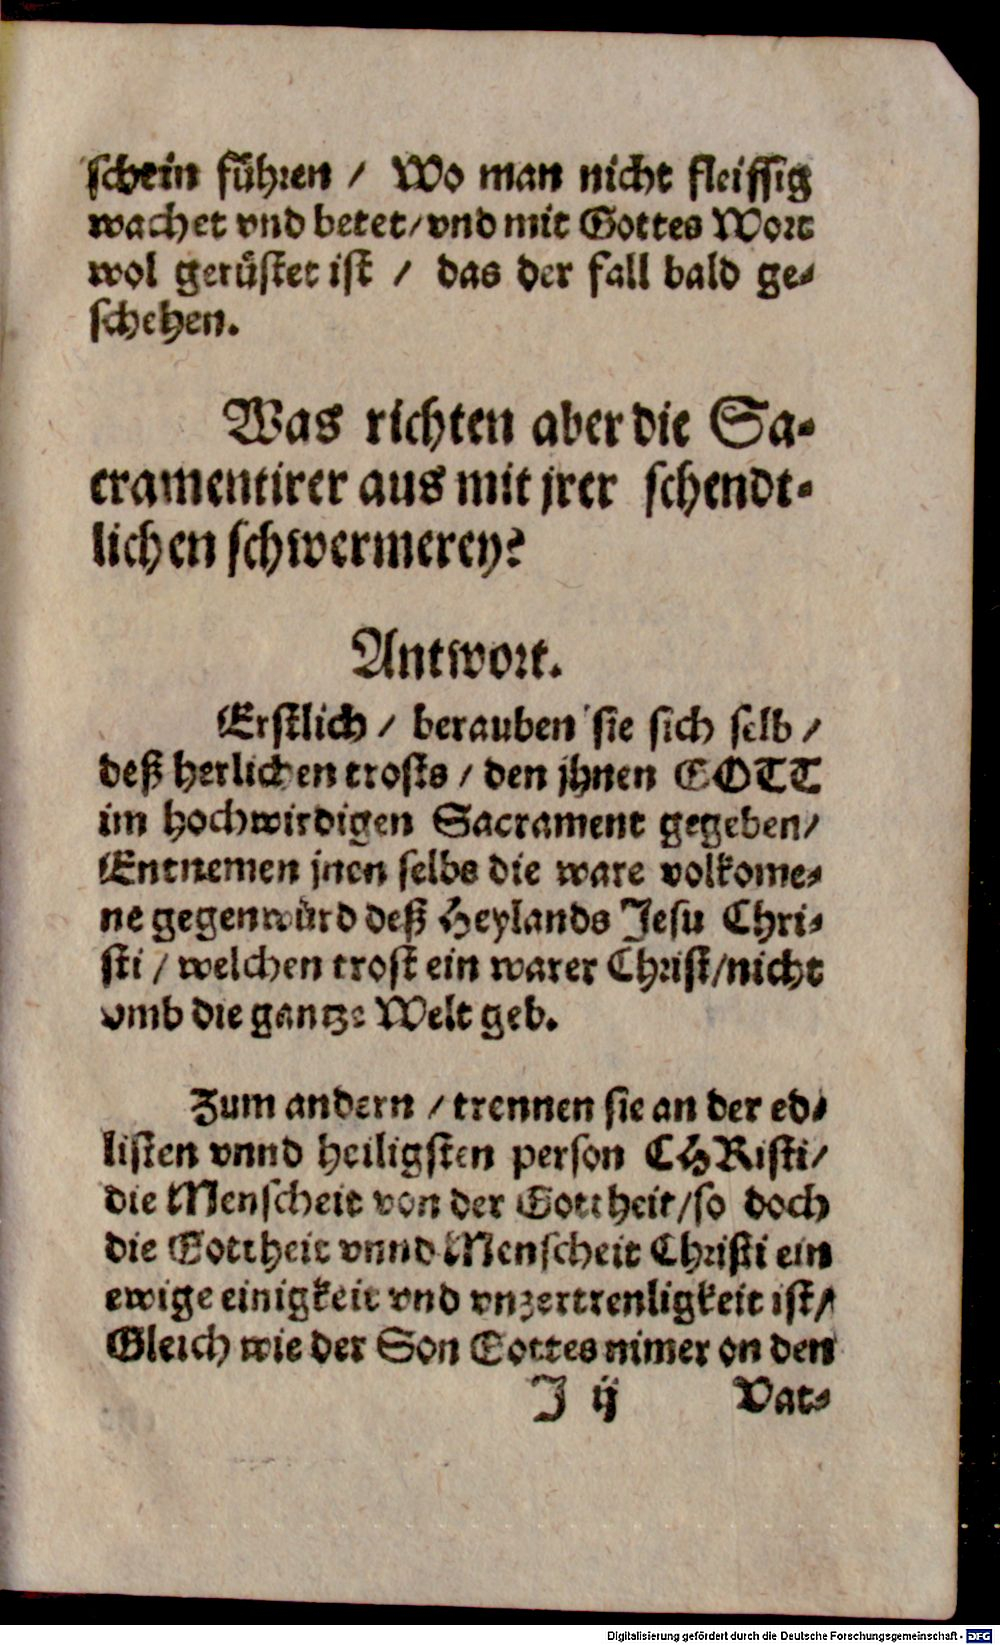 schein führen / Wo man nicht fleissig
wachet vnd betet/vnd mit Gottes Wort
wol gerüstet ist / das der fall bald ge-
schehen.
Was richten aber die Sa-
cramentirer aus mit jrer schendt-
lichen schwermerey?
Antwort.
Erstlich / berauben sie sich selb /
deß herlichen trosts / den jhnen GOTT
im hochwirdigen Sacrament gegeben/
Entnemen jnen selbs die ware volkome-
ne gegenwürd deß Heylands Jesu Chri-
sti / welchen trost ein warer Christ/nicht
vmb die gantze Welt geb.
Zum andern / trennen sie an der ed-
listen vnnd heiligsten person CHRisti/
die Menscheit von der Gottheit/so doch
die Gottheit vnnd Menscheit Christi ein
ewige einigkeit vnd vnzertrenligkeit ist/
Gleich wie der Son Gottes nimer on den
J ij Vat-
Digitalisierung gefördert durch die Deutsche Forschungsgemeinschaft - DFG